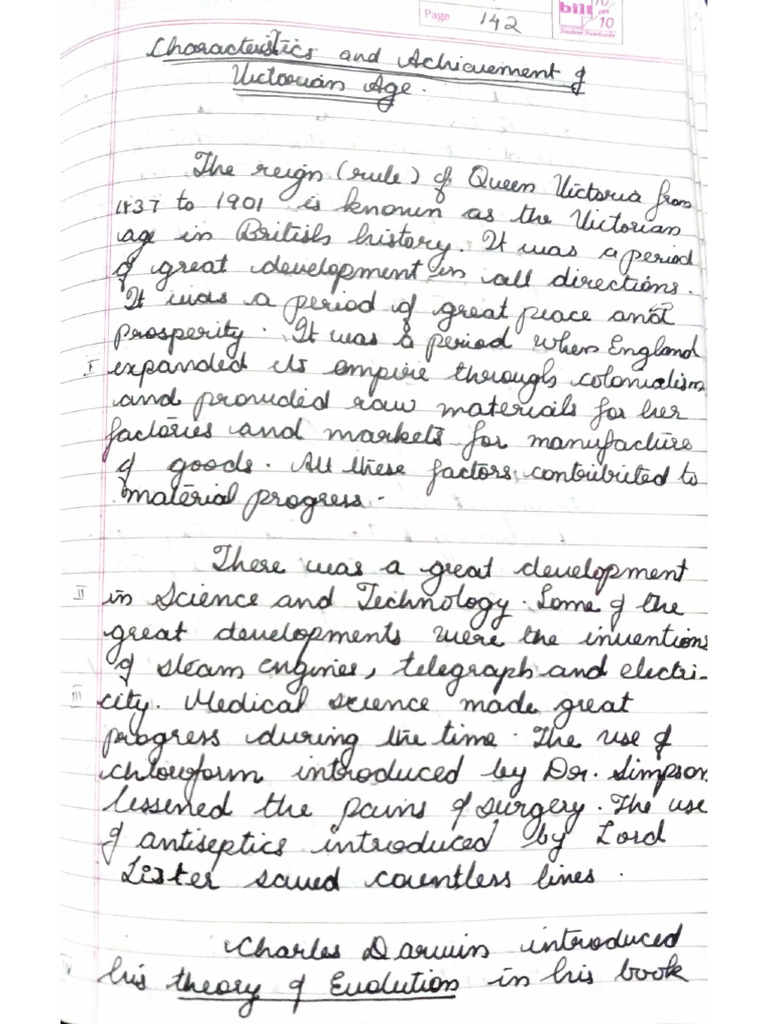 Page 142
bilt
10 on 10
Student Notebooks
Characteristics and Achievement of
Victorian Age.
The reign (rule) of Queen Victoria from
1837 to 1901 is known as the Victorian
age in British history. It was a period
of great development in all directions.
It was a period of great peace and
prosperity. It was a period when England
I expanded its empire through colonialism
and provided raw materials for her
factories and markets for manufacture
of goods. All these factors contributed to
material progress.
There was a great development
II in Science and Technology. Some of the
great developments were the inventions
of steam engines, telegraph and electri-
III city. Medical science made great
progress during the time. The use of
chloroform introduced by Dr. Simpson
lessened the pains of surgery. The use
of antiseptics introduced by Lord
Lister saved countless lines.
Charles Darwin introduced
IV his theory of Evolution in his book